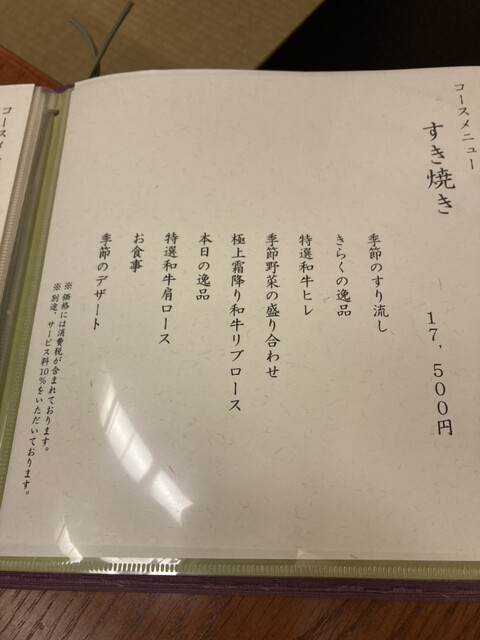 コースメニュー
すき焼き
17,500円
季節のすり流し
きらくの逸品
特選和牛ヒレ
季節野菜の盛り合わせ
極上霜降り和牛リブロース
本日の逸品
特選和牛肩ロース
お食事
季節のデザート
※価格には消費税が含まれております。
※別途、サービス料10%をいただいております。
コースメニ